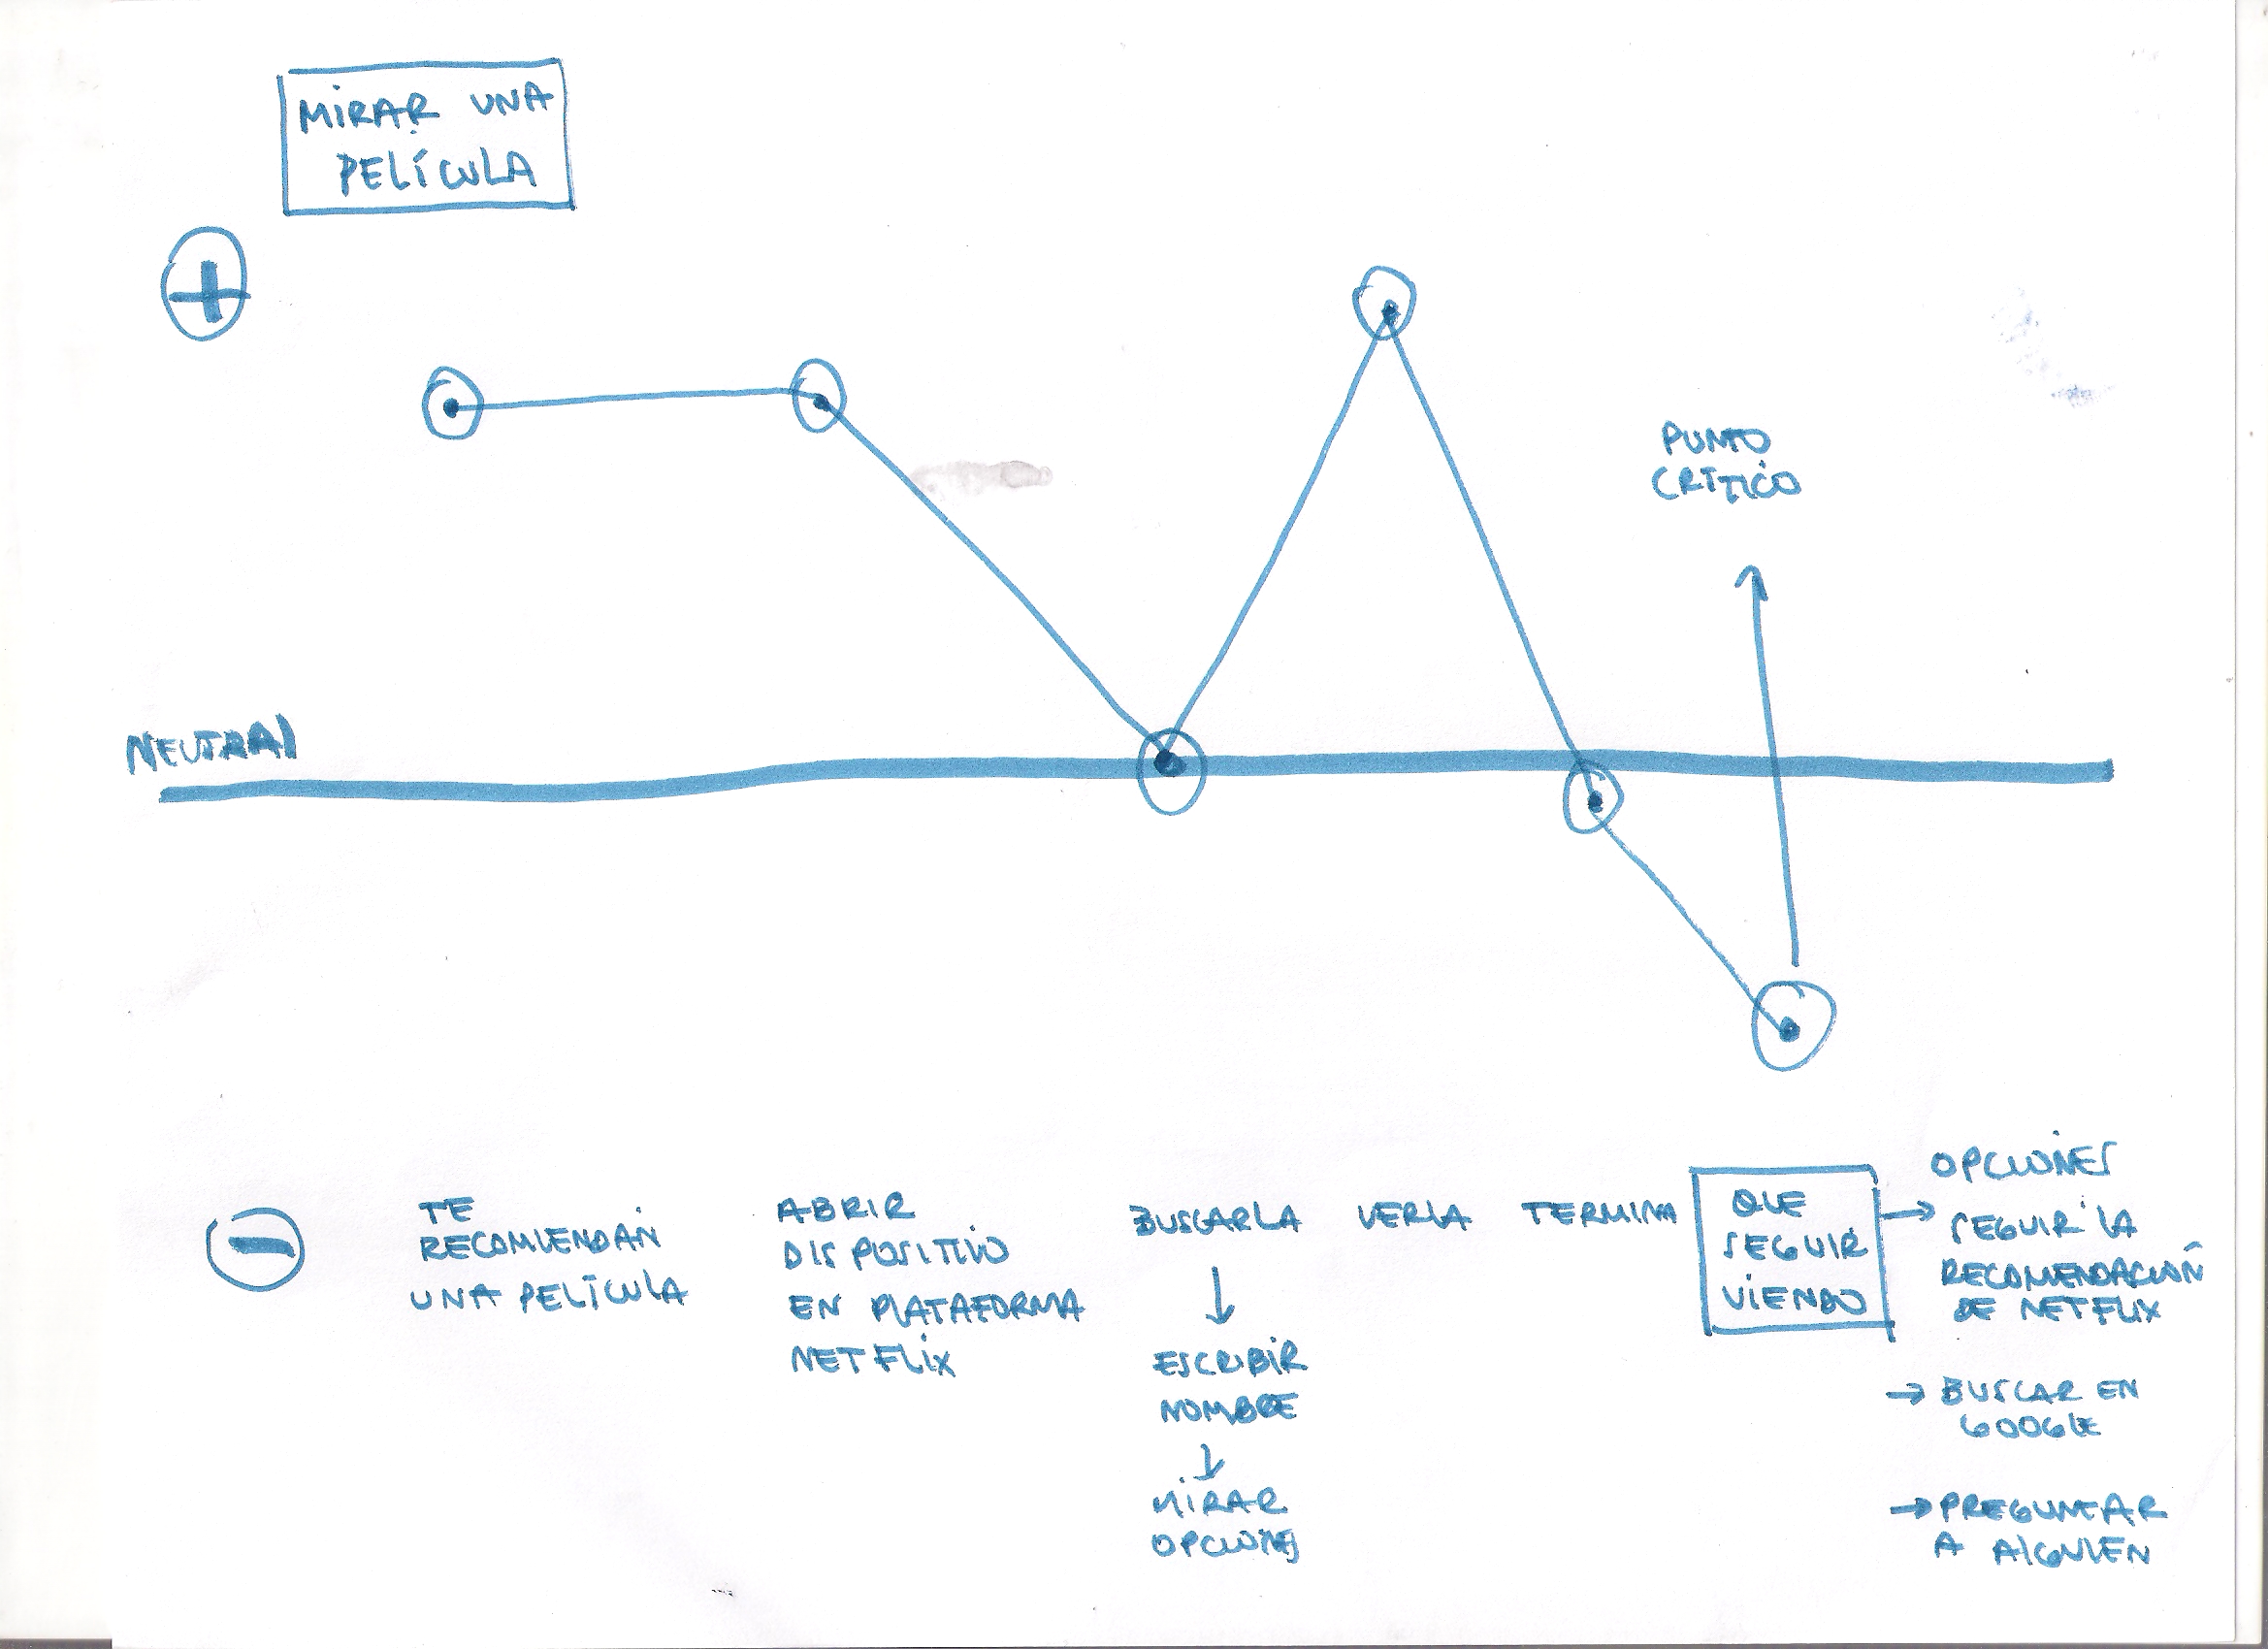 MIRAR UNA
PELÍCULA
+
PUNTO
CRÍTICO
NEUTRAL
-
TE
RECOMIENDAN
UNA PELÍCULA
ABRIR
DISPOSITIVO
EN PLATAFORMA
NETFLIX
BUSCARLA
↓
ESCRIBIR
NOMBRE
↓
MIRAR
OPCIONES
VERLA
TERMINA
QUE
SEGUIR
VIENDO
OPCIONES
→ SEGUIR LA
RECOMENDACIÓN
DE NETFLIX
→ BUSCAR EN
GOOGLE
→ PREGUNTAR
A ALGUIEN